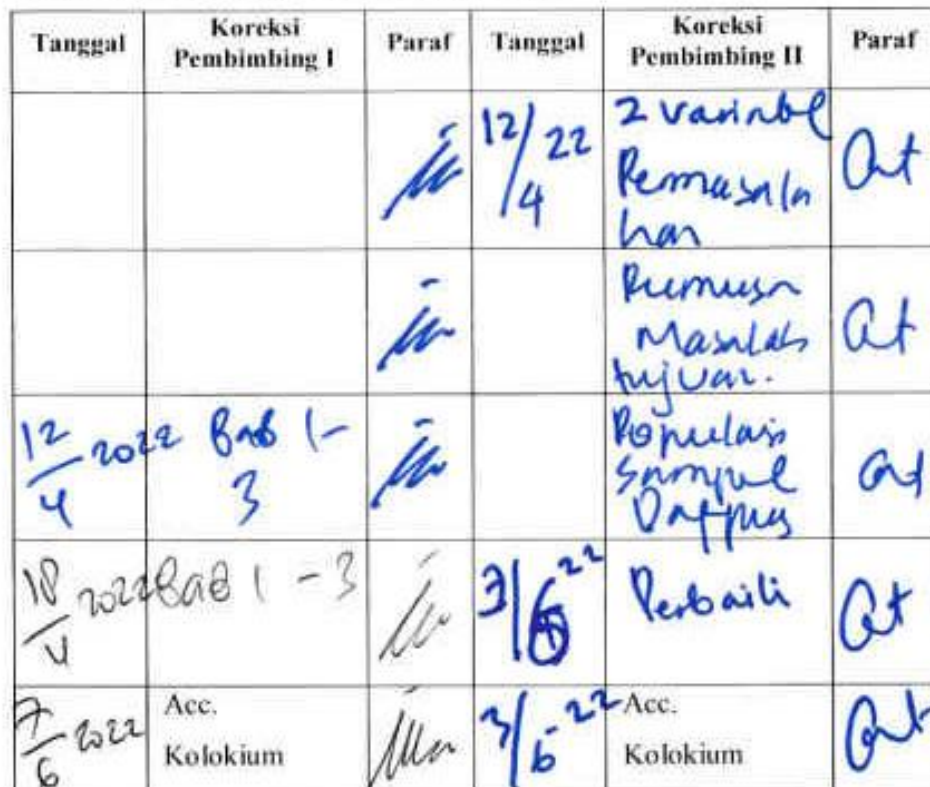 Tanggal Koreksi Pembimbing I Paraf Tanggal Koreksi Pembimbing II Paraf
12/4 22 2 variabel
Permasala
han
Rumusn
Masalah
tujuan.
12/4 2022 Bab 1-
3
Populasi
Sampel
Dafpus
18/4 2022 Bab 1 - 3
3/6 22 Perbaiki
7/6 2022 Acc.
Kolokium
3/6 - 22 Acc.
Kolokium